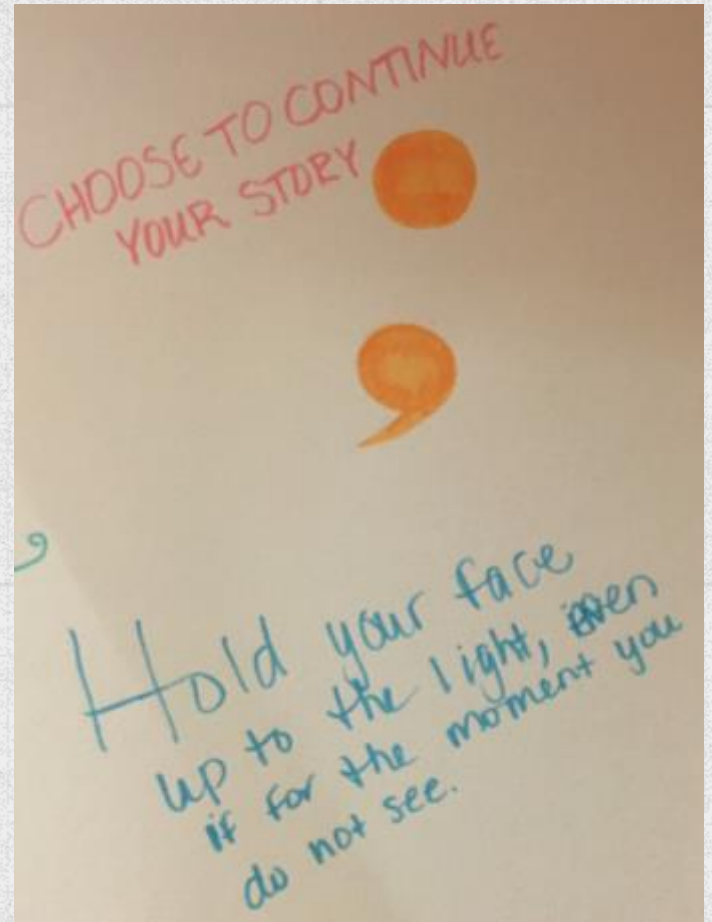 CHOOSE TO CONTINUE
YOUR STORY
;
Hold your face
up to the light, even
if for the moment you
do not see.